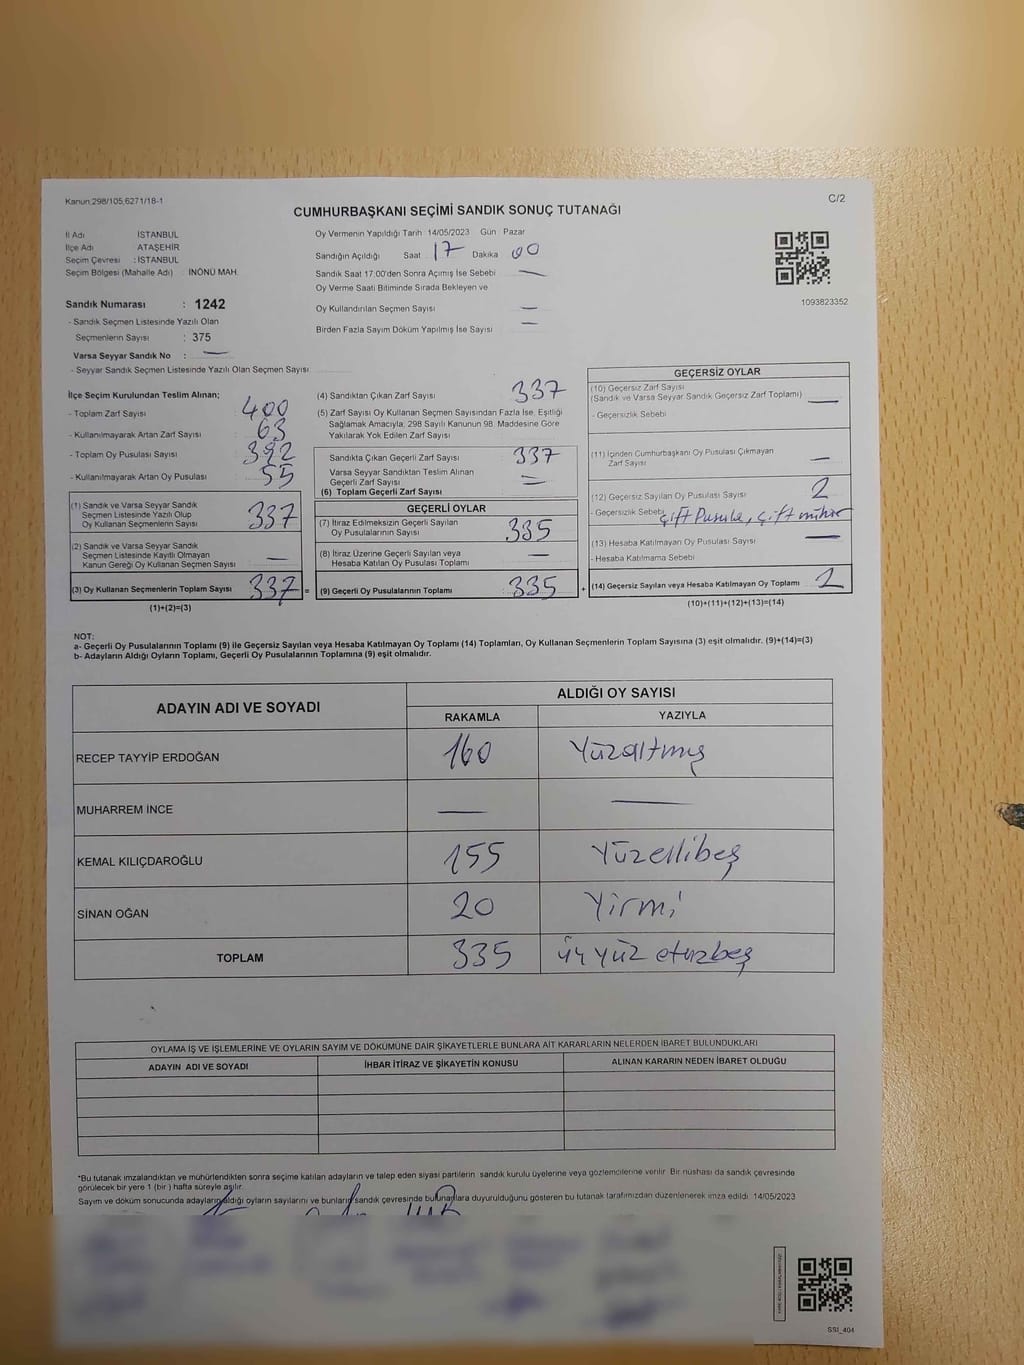 Kanun;298/105,6271/18-1
C/2
CUMHURBAŞKANI SEÇİMİ SANDIK SONUÇ TUTANAĞI
İl Adı İSTANBUL
İlçe Adı ATAŞEHİR
Seçim Çevresi : İSTANBUL
Seçim Bölgesi (Mahalle Adı) : İNÖNÜ MAH.
Sandık Numarası : 1242
- Sandık Seçmen Listesinde Yazılı Olan
Seçmenlerin Sayısı : 375
Varsa Seyyar Sandık No : —
- Seyyar Sandık Seçmen Listesinde Yazılı Olan Seçmen Sayısı
Oy Vermenin Yapıldığı Tarih 14/05/2023 Gün Pazar
Sandığın Açıldığı Saat 17 Dakika 00
Sandık Saat 17:00'den Sonra Açımış İse Sebebi —
Oy Verme Saati Bitiminde Sırada Bekleyen ve
Oy Kullandırılan Seçmen Sayısı —
Birden Fazla Sayım Döküm Yapılmış İse Sayısı —
1093823352
İlçe Seçim Kurulundan Teslim Alınan;
- Toplam Zarf Sayısı 400
- Kullanılmayarak Artan Zarf Sayısı 63
- Toplam Oy Pusulası Sayısı 392
- Kullanılmayarak Artan Oy Pusulası 55
(1) Sandık ve Varsa Seyyar Sandık
Seçmen Listesinde Yazılı Olup
Oy Kullanan Seçmenlerin Sayısı 337
(2) Sandık ve Varsa Seyyar Sandık
Seçmen Listesinde Kayıtlı Olmayan
Kanun Gereği Oy Kullanan Seçmen Sayısı —
(3) Oy Kullanan Seçmenlerin Toplam Sayısı 337 =
(1)+(2)=(3)
(4) Sandıktan Çıkan Zarf Sayısı 337
(5) Zarf Sayısı Oy Kullanan Seçmen Sayısından Fazla İse, Eşitliği
Sağlamak Amacıyla; 298 Sayılı Kanunun 98. Maddesine Göre
Yakılarak Yok Edilen Zarf Sayısı
Sandıkta Çıkan Geçerli Zarf Sayısı 337
Varsa Seyyar Sandıktan Teslim Alınan
Geçerli Zarf Sayısı —
(6) Toplam Geçerli Zarf Sayısı
GEÇERLİ OYLAR
(7) İtiraz Edilmeksizin Geçerli Sayılan
Oy Pusulalarının Sayısı 335
(8) İtiraz Üzerine Geçerli Sayılan veya
Hesaba Katılan Oy Pusulası Toplamı —
(9) Geçerli Oy Pusulalarının Toplamı 335 +
GEÇERSİZ OYLAR
(10) Geçersiz Zarf Sayısı
(Sandık ve Varsa Seyyar Sandık Geçersiz Zarf Toplamı) —
- Geçersizlik Sebebi
(11) İçinden Cumhurbaşkanı Oy Pusulası Çıkmayan
Zarf Sayısı —
(12) Geçersiz Sayılan Oy Pusulası Sayısı 2
- Geçersizlik Sebebi çift Pusula, çift mühür
(13) Hesaba Katılmayan Oy Pusulası Sayısı —
- Hesaba Katılmama Sebebi
(14) Geçersiz Sayılan veya Hesaba Katılmayan Oy Toplamı 2
(10)+(11)+(12)+(13)=(14)
NOT:
a- Geçerli Oy Pusulalarının Toplamı (9) ile Geçersiz Sayılan veya Hesaba Katılmayan Oy Toplamı (14) Toplamları, Oy Kullanan Seçmenlerin Toplam Sayısına (3) eşit olmalıdır. (9)+(14)=(3)
b- Adayların Aldığı Oyların Toplamı, Geçerli Oy Pusulalarının Toplamına (9) eşit olmalıdır.
ADAYIN ADI VE SOYADI
ALDIĞI OY SAYISI
RAKAMLA YAZIYLA
RECEP TAYYİP ERDOĞAN 160 Yüzaltmış
MUHARREM İNCE — —
KEMAL KILIÇDAROĞLU 155 Yüzellibeş
SİNAN OĞAN 20 Yirmi
TOPLAM 335 üçyüz otuzbeş
OYLAMA İŞ VE İŞLEMLERİNE VE OYLARIN SAYIM VE DÖKÜMÜNE DAİR ŞİKAYETLERLE BUNLARA AİT KARARLARIN NELERDEN İBARET BULUNDUKLARI
ADAYIN ADI VE SOYADI İHBAR İTİRAZ VE ŞİKAYETİN KONUSU ALINAN KARARIN NEDEN İBARET OLDUĞU
*Bu tutanak imzalandıktan ve mühürlendikten sonra seçime katılan adayların ve talep eden siyasi partilerin sandık kurulu üyelerine veya gözlemcilerine verilir. Bir nüshası da sandık çevresinde
görülecek bir yere 1 (bir) hafta süreyle asılır.
Sayım ve döküm sonucunda adayların aldığı oyların sayılarını ve bunların sandık çevresinde bulunanlara duyurulduğunu gösteren bu tutanak tarafımızdan düzenlenerek imza edildi. 14/05/2023
SSI_404